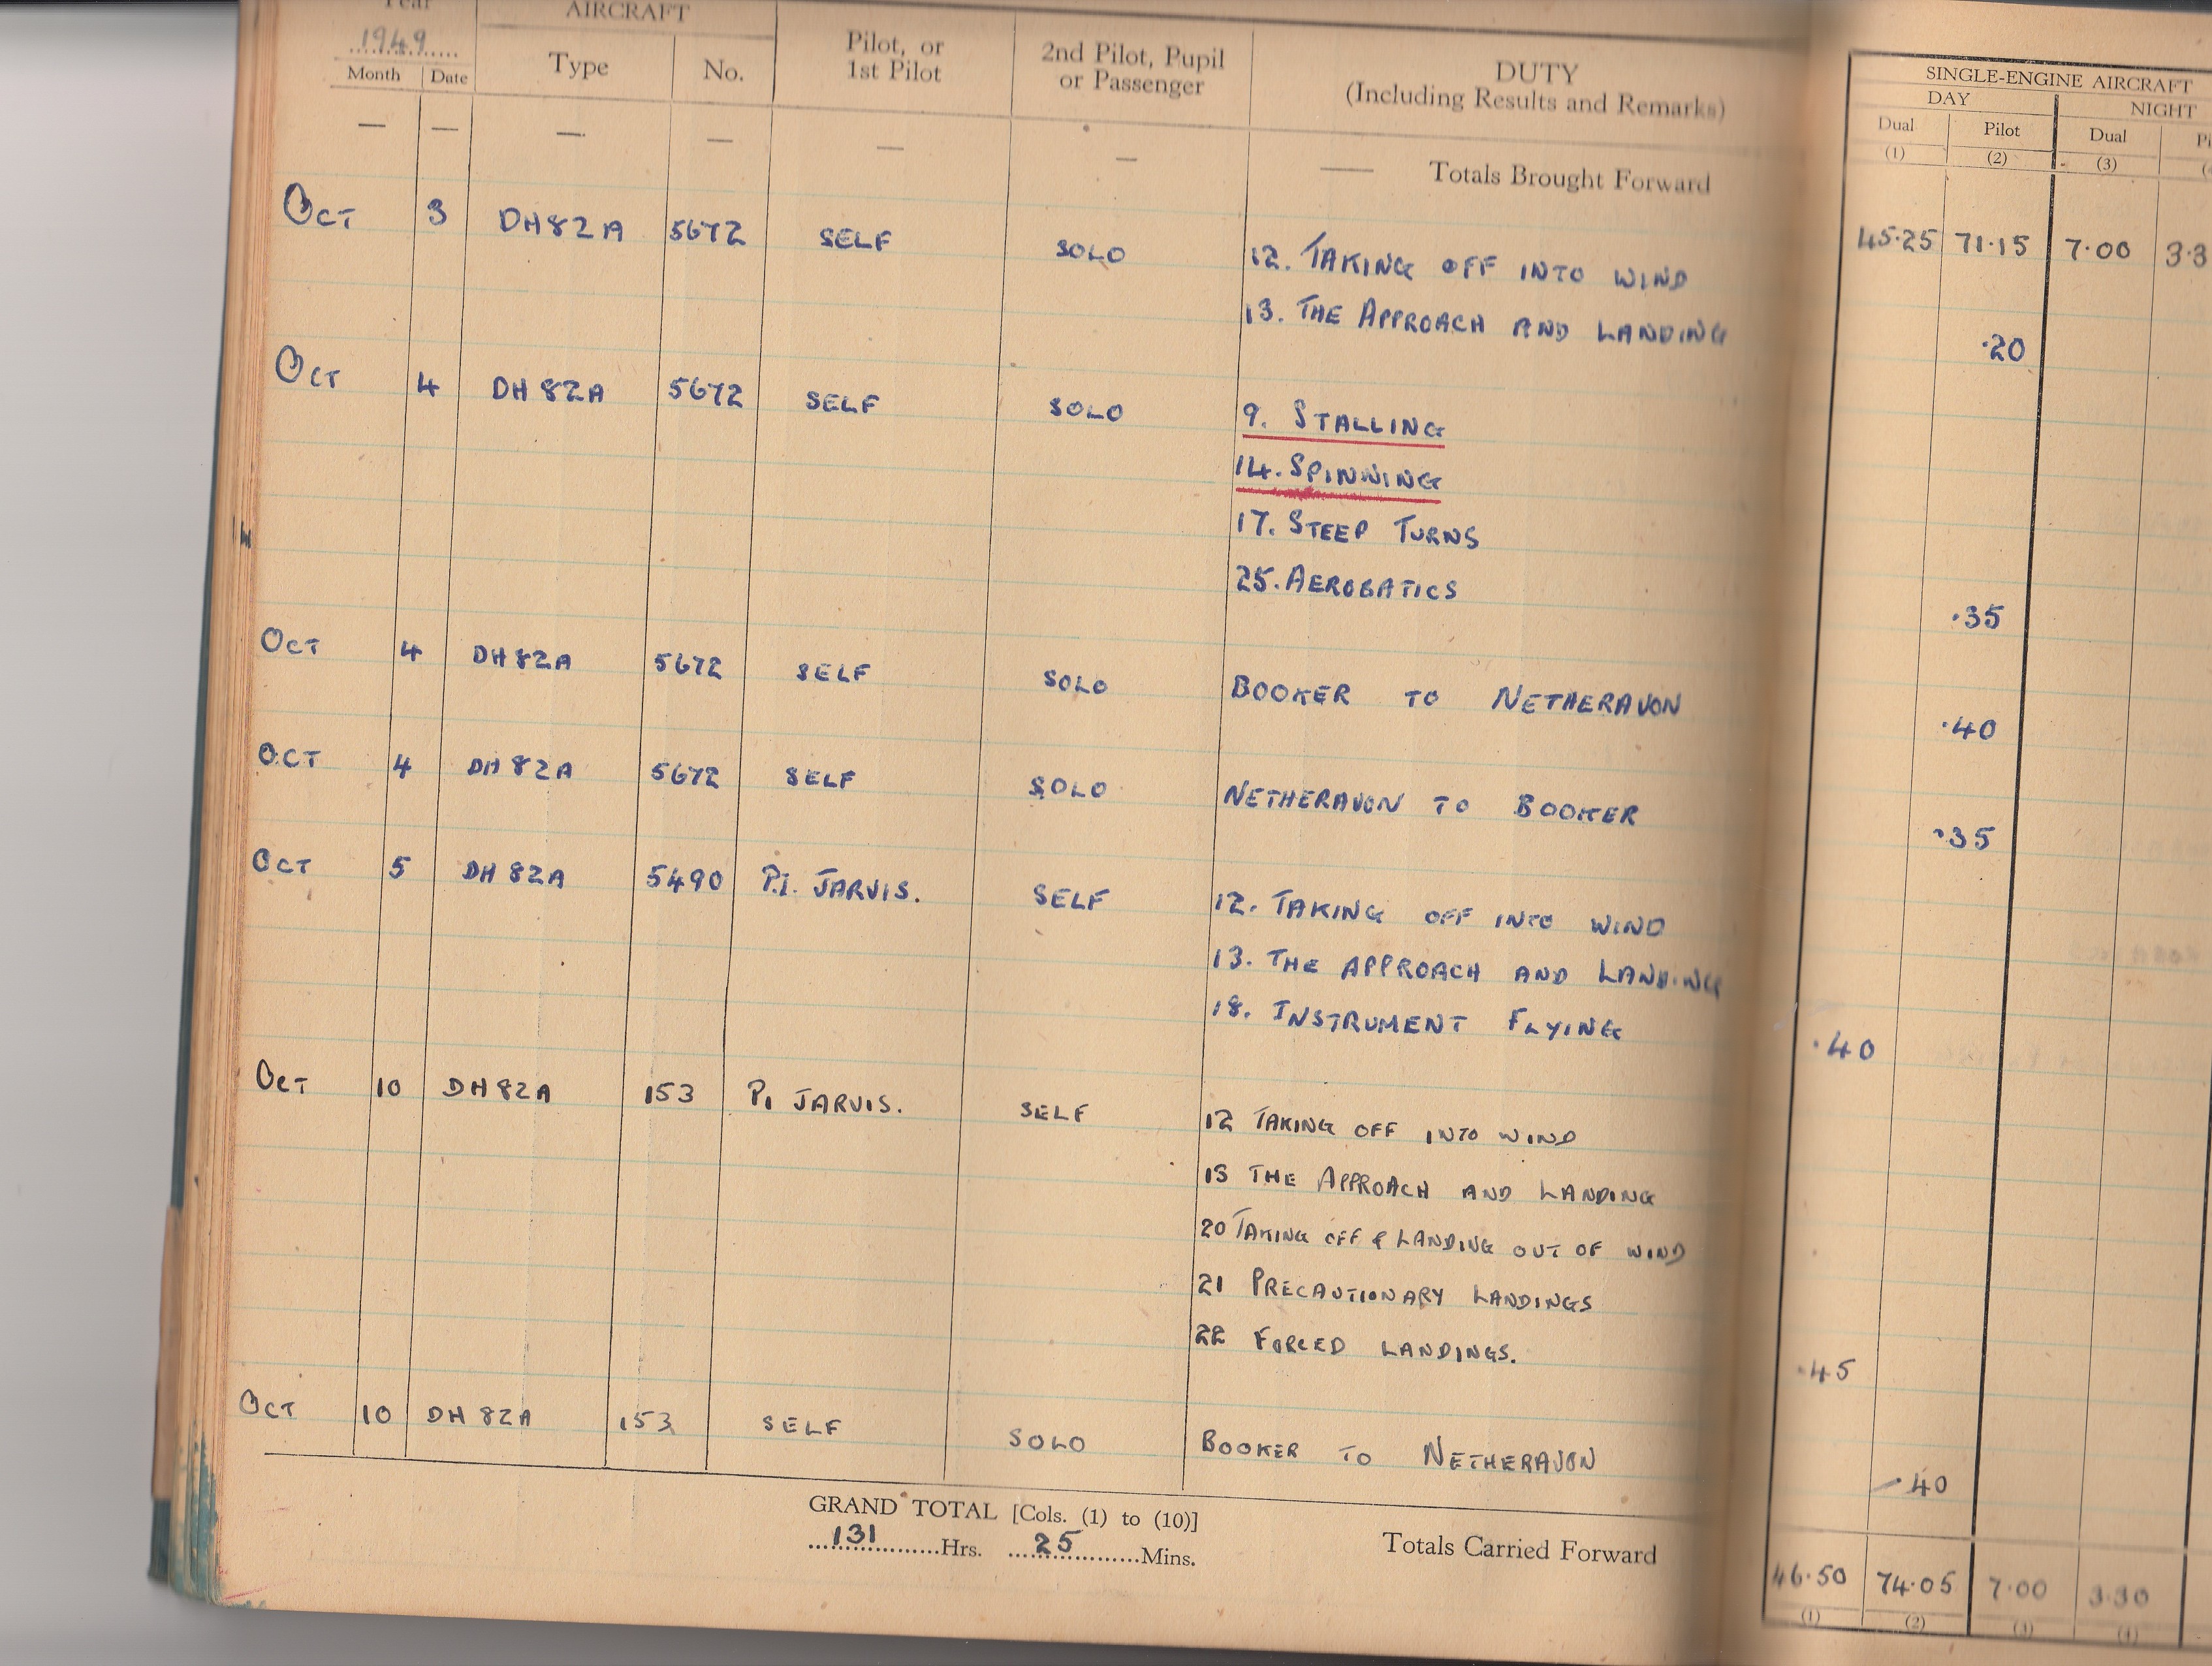 Year AIRCRAFT Pilot, or 2nd Pilot, Pupil DUTY SINGLE-ENGINE AIRCRAFT
1949 Type No. 1st Pilot or Passenger (Including Results and Remarks) DAY NIGHT
Month Date Dual Pilot Dual
(1) (2) (3)
— — — — — — — Totals Brought Forward
OCT 3 DH82A 5672 SELF SOLO 12. TAKING OFF INTO WIND 45.25 71.15 7.00 3.3
13. THE APPROACH AND LANDING .20
OCT 4 DH82A 5672 SELF SOLO 9. STALLING
14. SPINNING
17. STEEP TURNS
25. AEROBATICS .35
OCT 4 DH82A 5672 SELF SOLO BOOKER TO NETHERAVON .40
OCT 4 DH82A 5672 SELF SOLO NETHERAVON TO BOOKER .35
OCT 5 DH82A 5490 P.I. JARVIS. SELF 12. TAKING OFF INTO WIND
13. THE APPROACH AND LANDING
18. INSTRUMENT FLYING .40
OCT 10 DH82A 153 P. JARVIS. SELF 12 TAKING OFF INTO WIND
13 THE APPROACH AND LANDING
20 TAKING OFF & LANDING OUT OF WIND
21 PRECAUTIONARY LANDINGS
22 FORCED LANDINGS. .45
OCT 10 DH82A 153 SELF SOLO BOOKER TO NETHERAVON .40
GRAND TOTAL [Cols. (1) to (10)]
131 Hrs. 25 Mins. Totals Carried Forward 46.50 74.05 7.00 3.30
(1) (2) (3) (4)